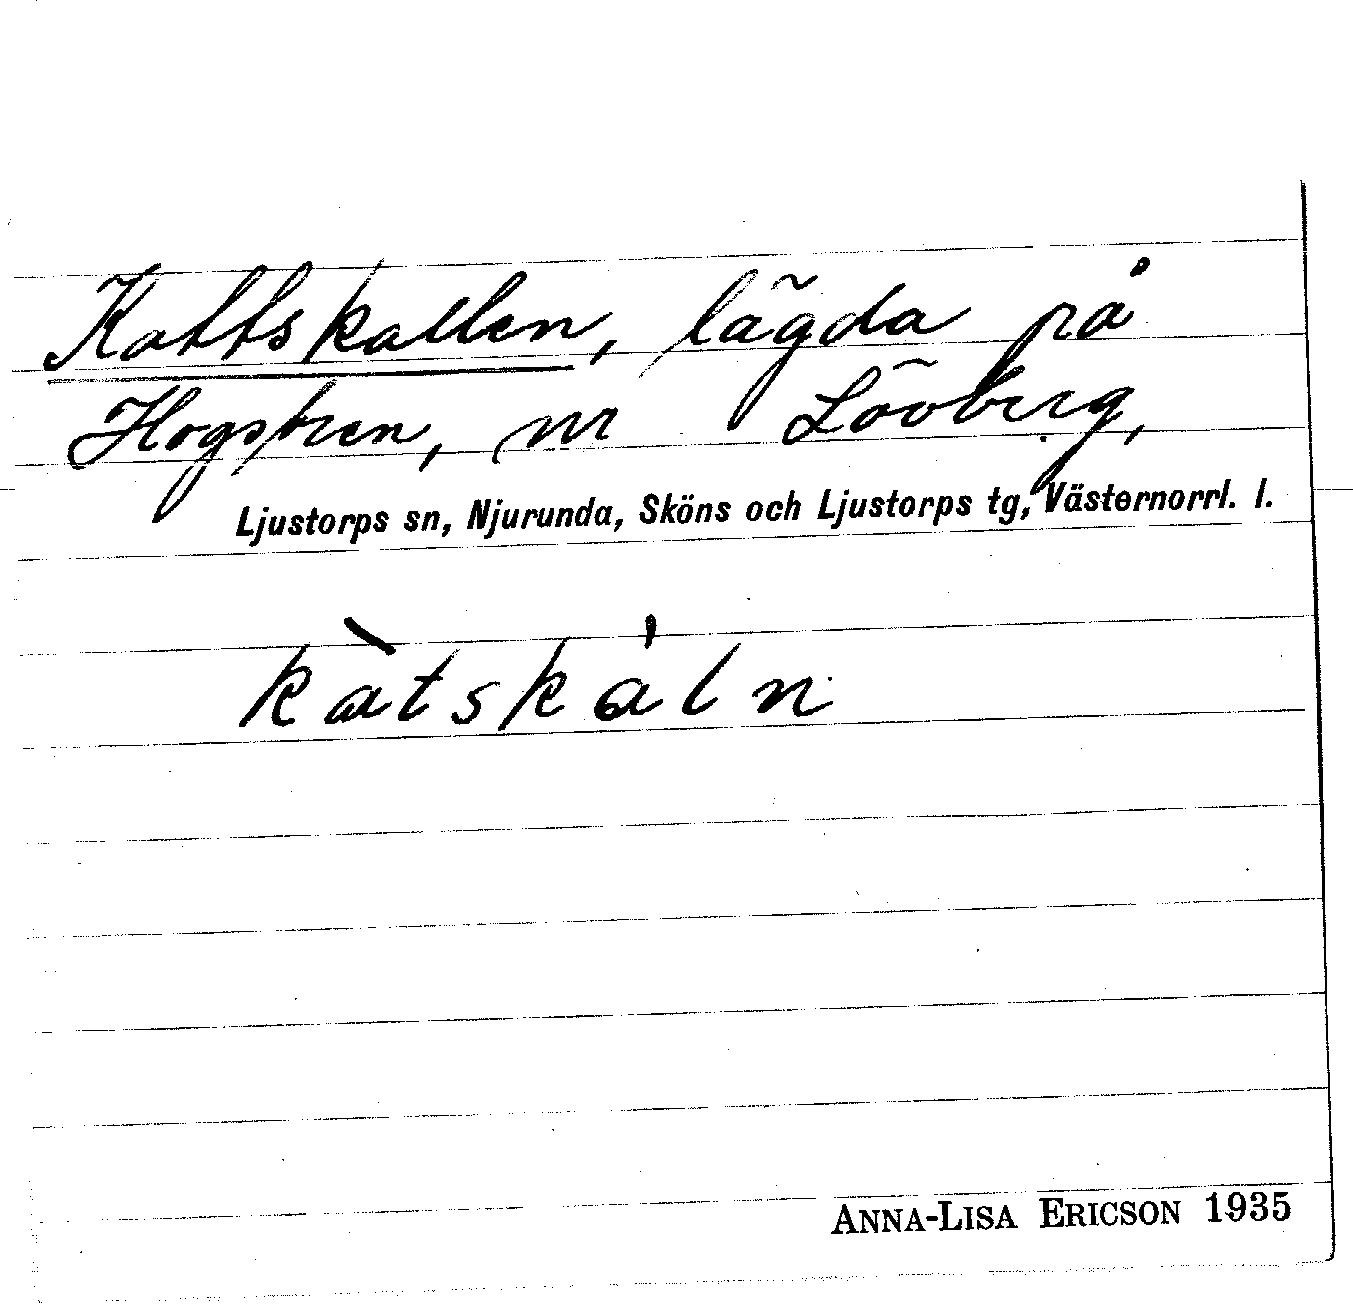 Kattskallen, lägda på
Hogstren, nr Lövberg,
Ljustorps sn, Njurunda, Sköns och Ljustorps tg, Västernorrl. l.
kàtskáln
ANNA-LISA ERICSON 1935